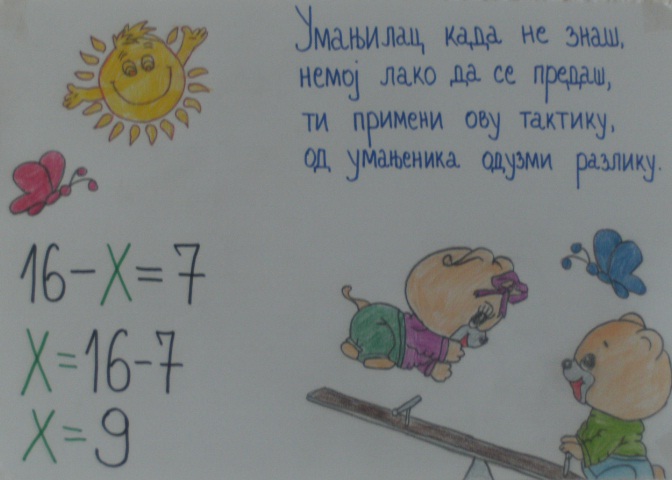 Умањилац када не знаш,
немој лако да се предаш,
ти примени ову тактику,
од умањеника одузми разлику.
16-X=7
X=16-7
X=9